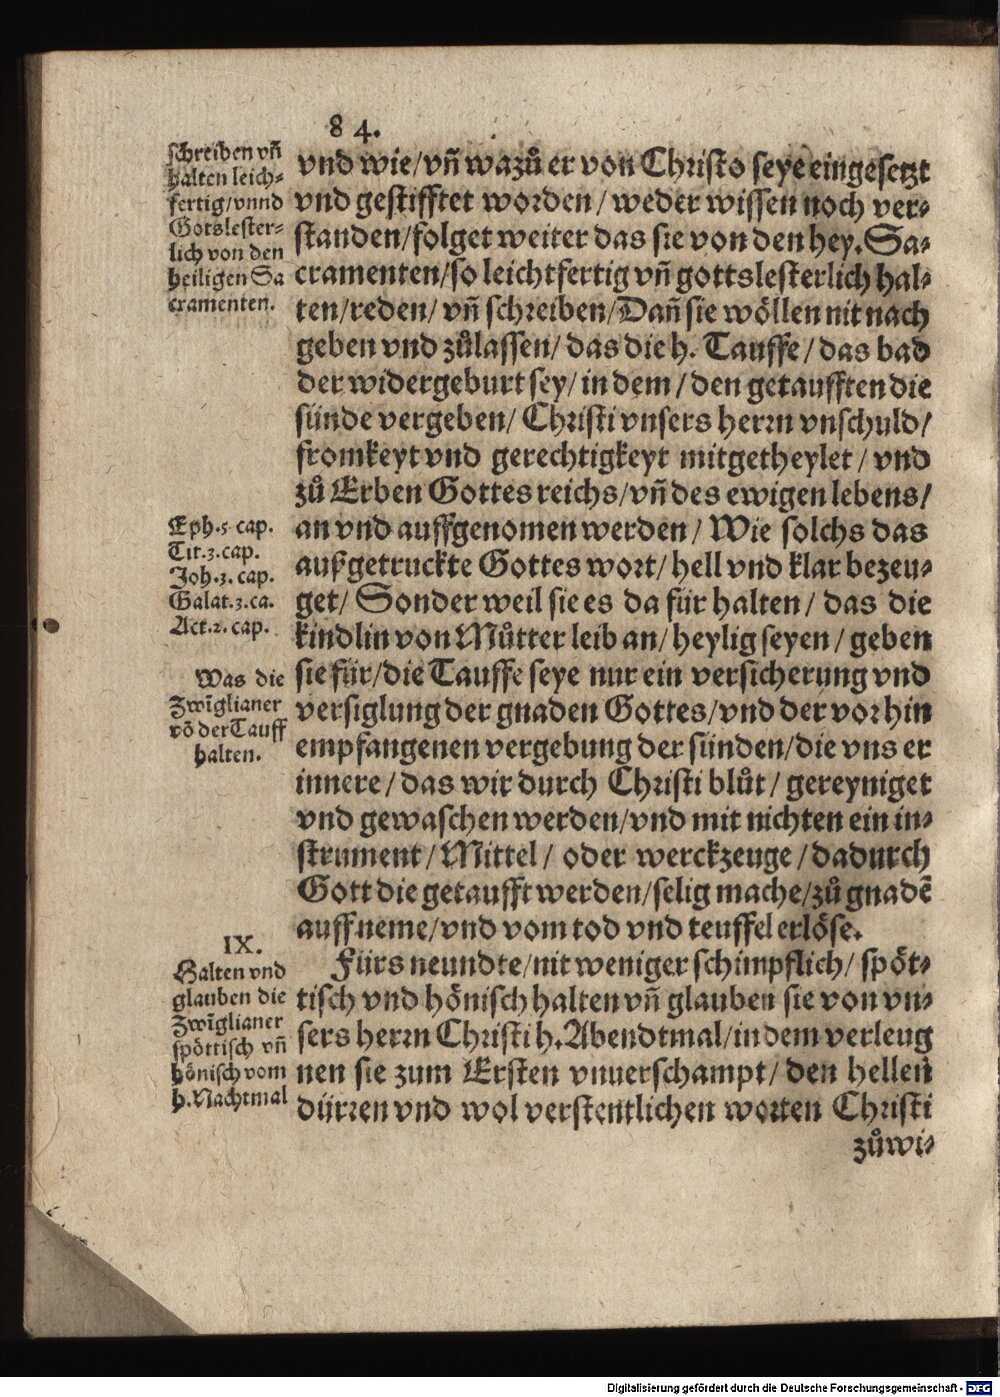 84.
schreiben vñ
halten leich⸗
fertig/vnnd
Gotslester⸗
lich von den
heiligen Sa
cramenten.
vnd wie/vñ wazů er von Christo seye eingesetzt
vnd gestifftet worden/weder wissen noch ver⸗
standen/folget weiter das sie von den hey. Sa⸗
cramenten/so leichtfertig vñ gottslesterlich hal⸗
ten/reden/vñ schreiben/Dañ sie wöllen nit nach
geben vnd zůlassen/das die h. Tauffe/das bad
der widergeburt sey/in dem/den getaufften die
sünde vergeben/Christi vnsers herrn vnschuld/
fromkeyt vnd gerechtigkeyt mitgetheylet/vnd
zů Erben Gottes reichs/vñ des ewigen lebens/
an vnd auffgenomen werden/Wie solchs das
außgetruckte Gottes wort/hell vnd klar bezeu⸗
get/Sonder weil sie es da für halten/das die
kindlin von Můtter leib an/heylig seyen/geben
sie für/die Tauffe seye nur ein versicherung vnd
versiglung der gnaden Gottes/vnd der vorhin
empfangenen vergebung der sünden/die vns er
innere/das wir durch Christi blůt/gereyniget
vnd gewaschen werden/vnd mit nichten ein in⸗
strument/Mittel/oder werckzeuge/dadurch
Gott die getaufft werden/selig mache/zů gnadē
auffneme/vnd vom tod vnd teuffel erlöse.
Eph.5 cap.
Tit.3.cap.
Joh.3.cap.
Galat.3.ca.
Act.2.cap.
Was die
Zwīglianer
vō der Tauff
halten.
IX.
Halten vnd
glauben die
Zwīglianer
spöttisch vñ
hönisch vom
h. Nachtmal
Fürs neundte/nit weniger schimpflich/spöt⸗
tisch vnd hönisch halten vñ glauben sie von vn⸗
sers herrn Christi h. Abendtmal/in dem verleug
nen sie zum Ersten vnuerschampt/den hellen
dürren vnd wol verstentlichen worten Christi
zůwi⸗
Digitalisierung gefördert durch die Deutsche Forschungsgemeinschaft - DFG